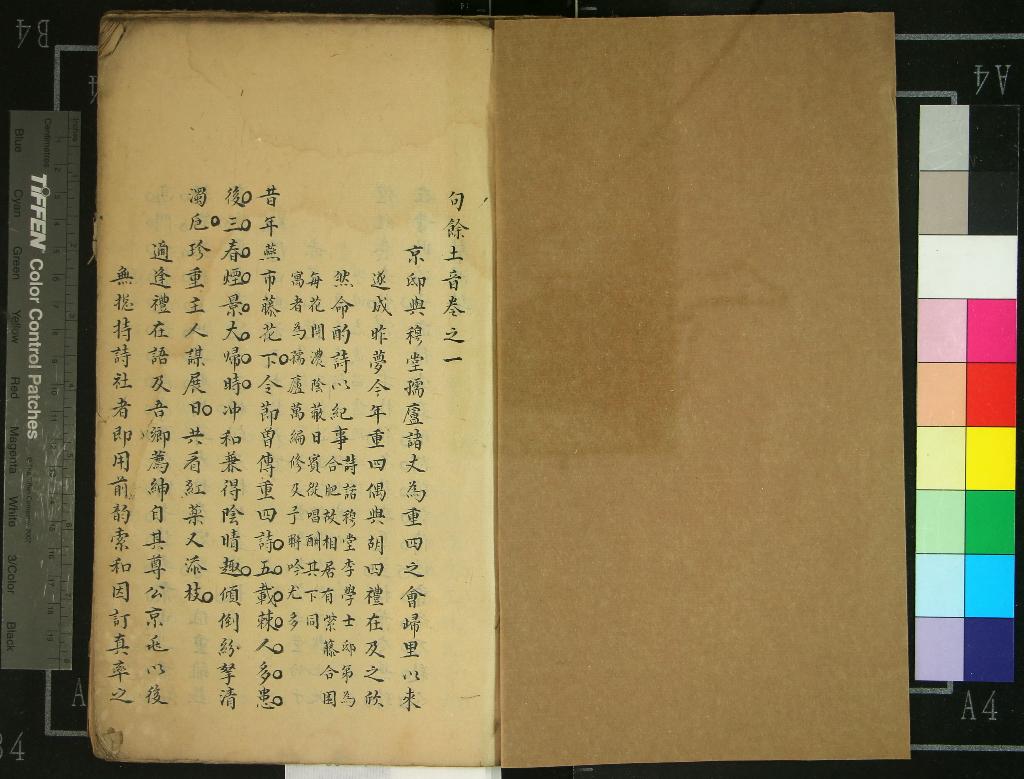 句餘土音卷之一
京邸與穆堂孺廬諸丈為重四之會歸里以來
遂成昨夢今年重四偶與胡四禮在及之欣
然命酌詩以紀事詩話穆堂李學士邸第為
合肥故相居有紫藤合囷
每花開濃陰蔽日賓從唱酬其下同
寓者為孺廬萬編修及予聯吟尤多
昔年燕市藤花下令節曾傳重四詩五載棘人多患
後三春煙景大歸時沖和兼得陰晴趣傾倒紛拏清
濁卮珍重主人謀展日共看紅葉又添枝
適逢禮在語及吾鄉薦紳自其尊公京兆以後
無摠持詩社者即用前韵索和因訂真率之
B4
A4
TIFFEN Color Control Patches
Blue Cyan Green Yellow Red Magenta White 3/Color Black
Centimetres
Inches
A4